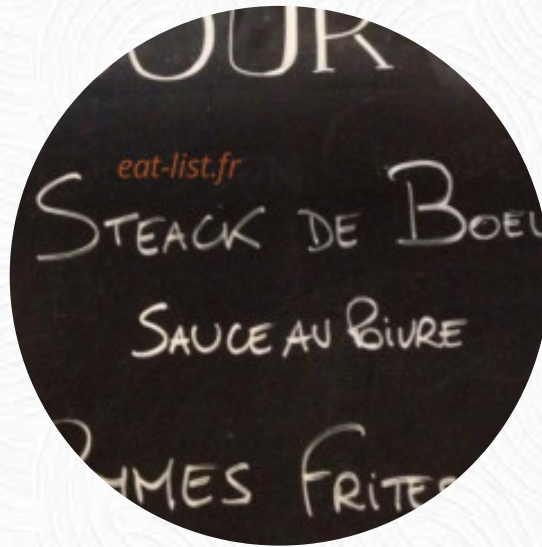 OUR
eat-list.fr
STEACK DE BOEU
SAUCE AU POIVRE
MMES FRITES